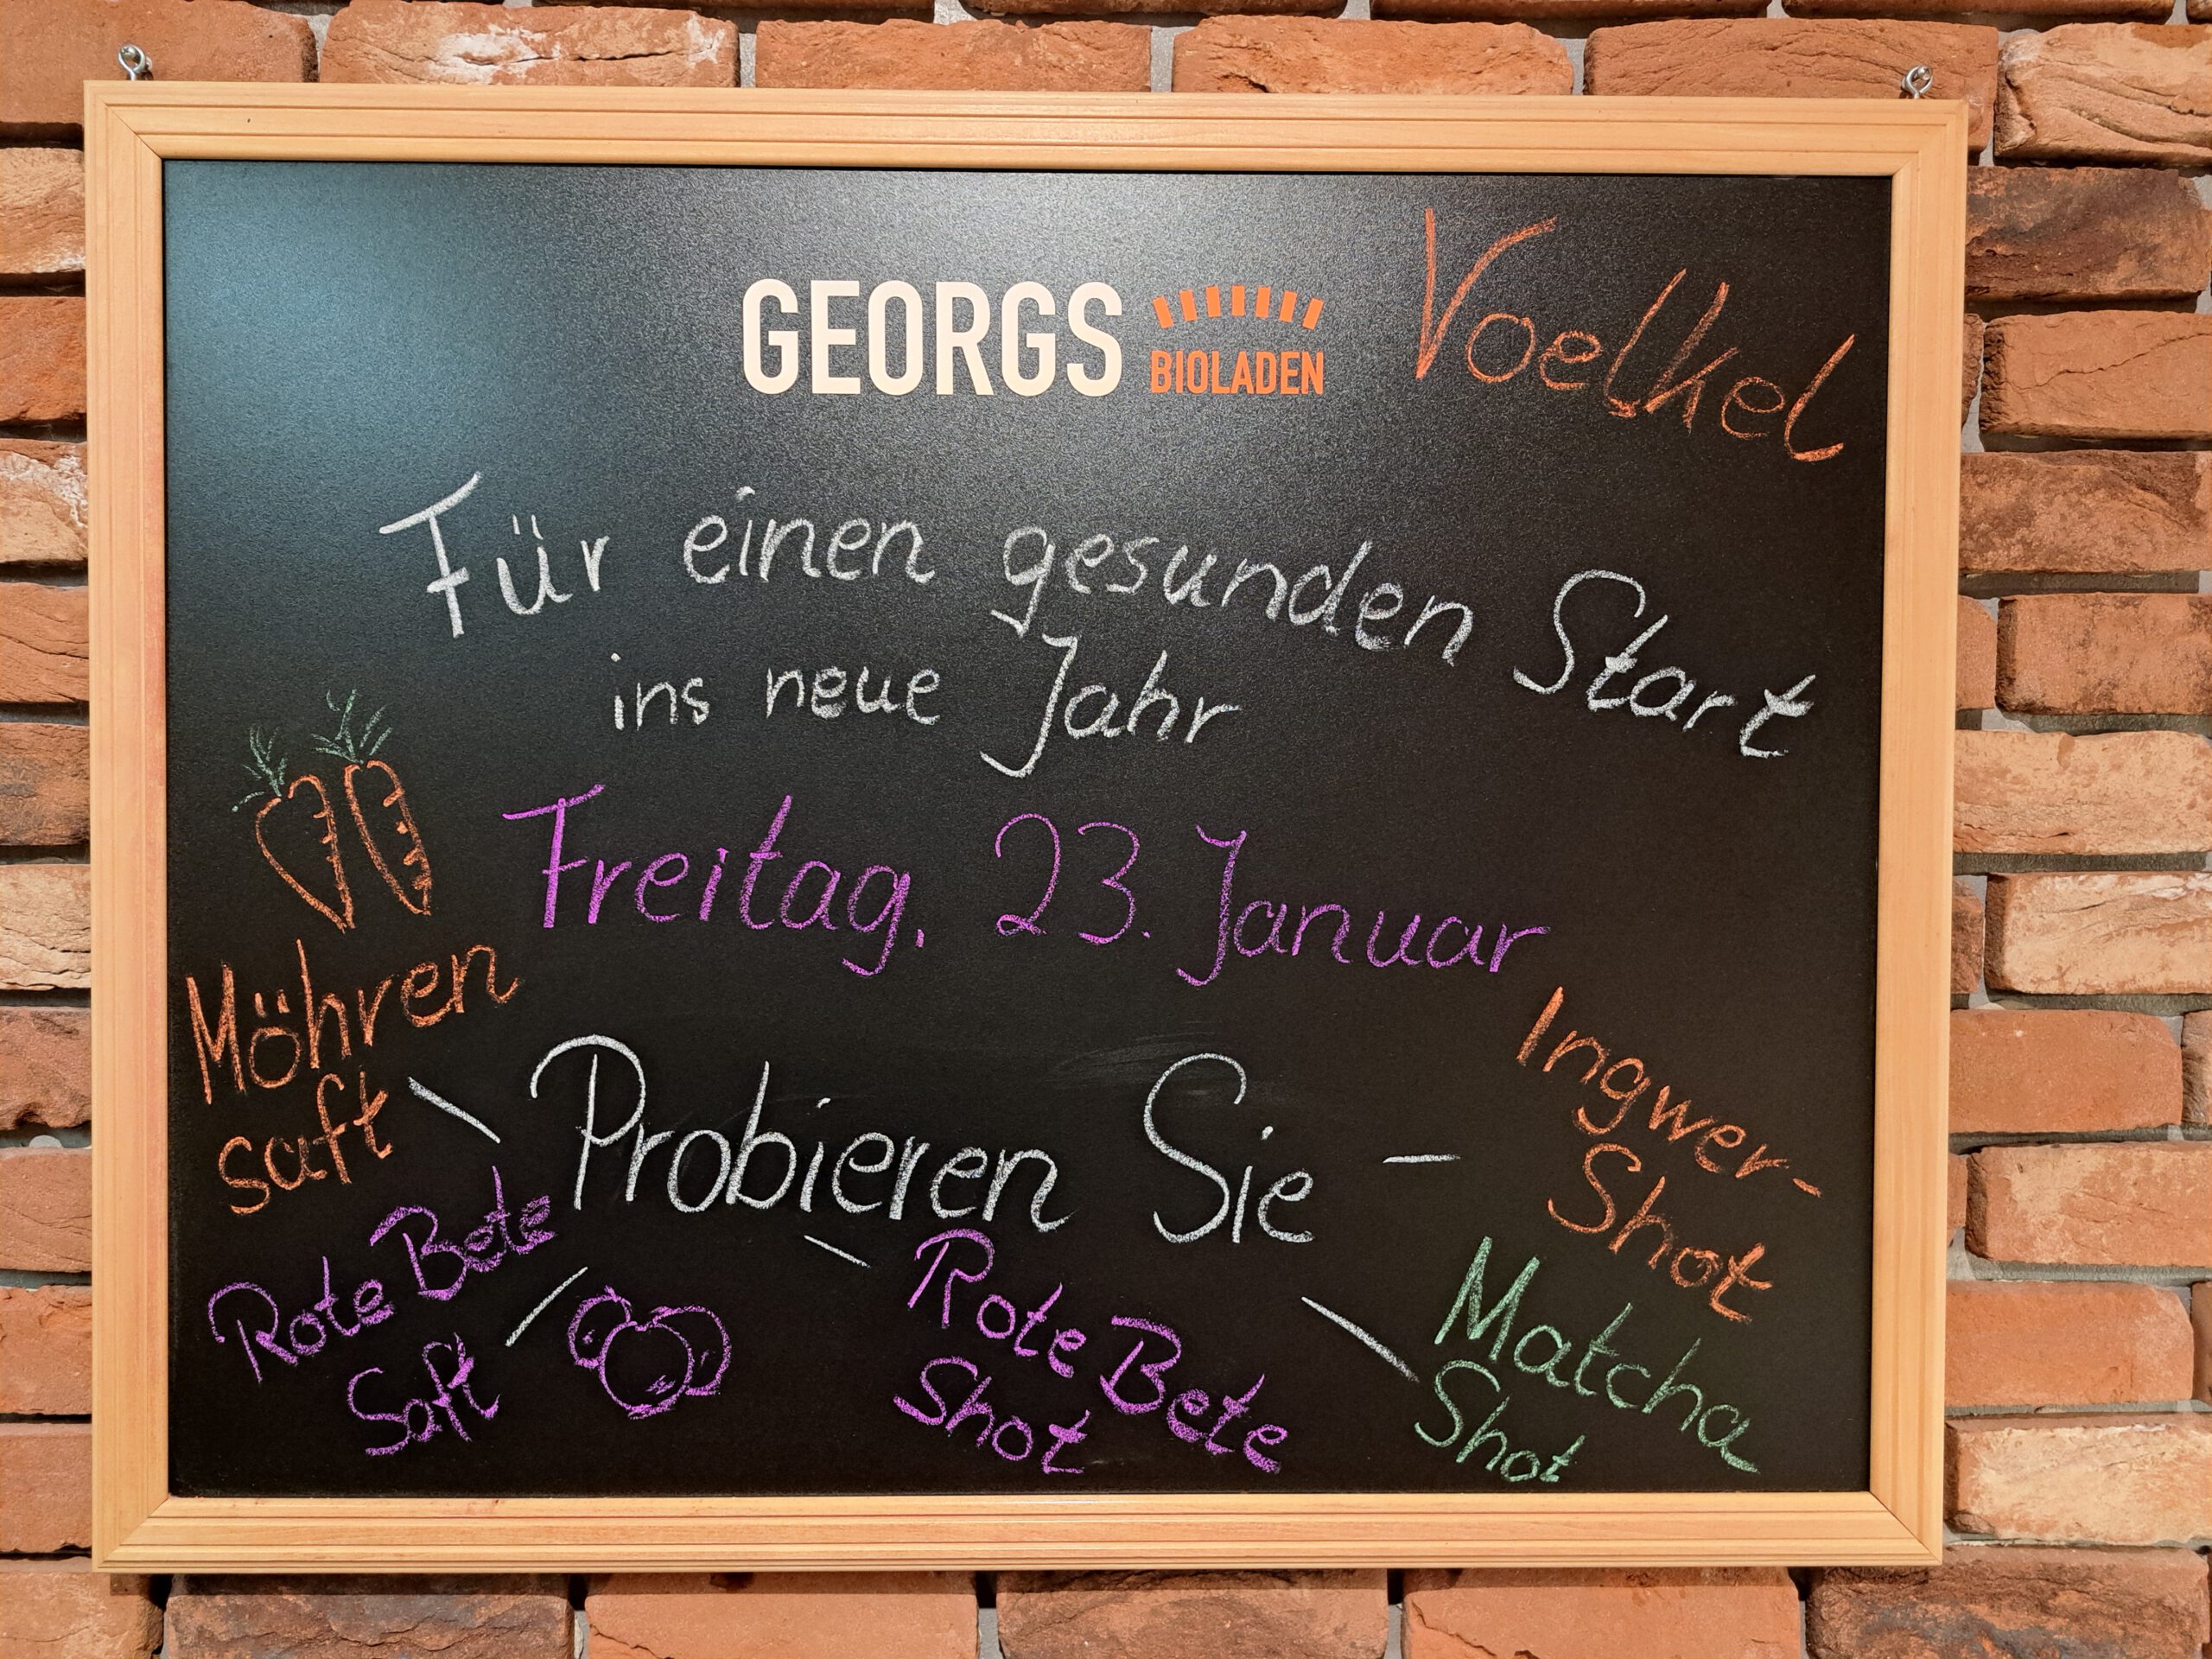 GEORGS BIOLADEN
Voelkel
Für einen gesunden Start
ins neue Jahr
Freitag, 23. Januar
Möhren
saft
Probieren Sie
Ingwer-
Shot
Rote Bete
Saft
Rote Bete
Shot
Matcha
Shot